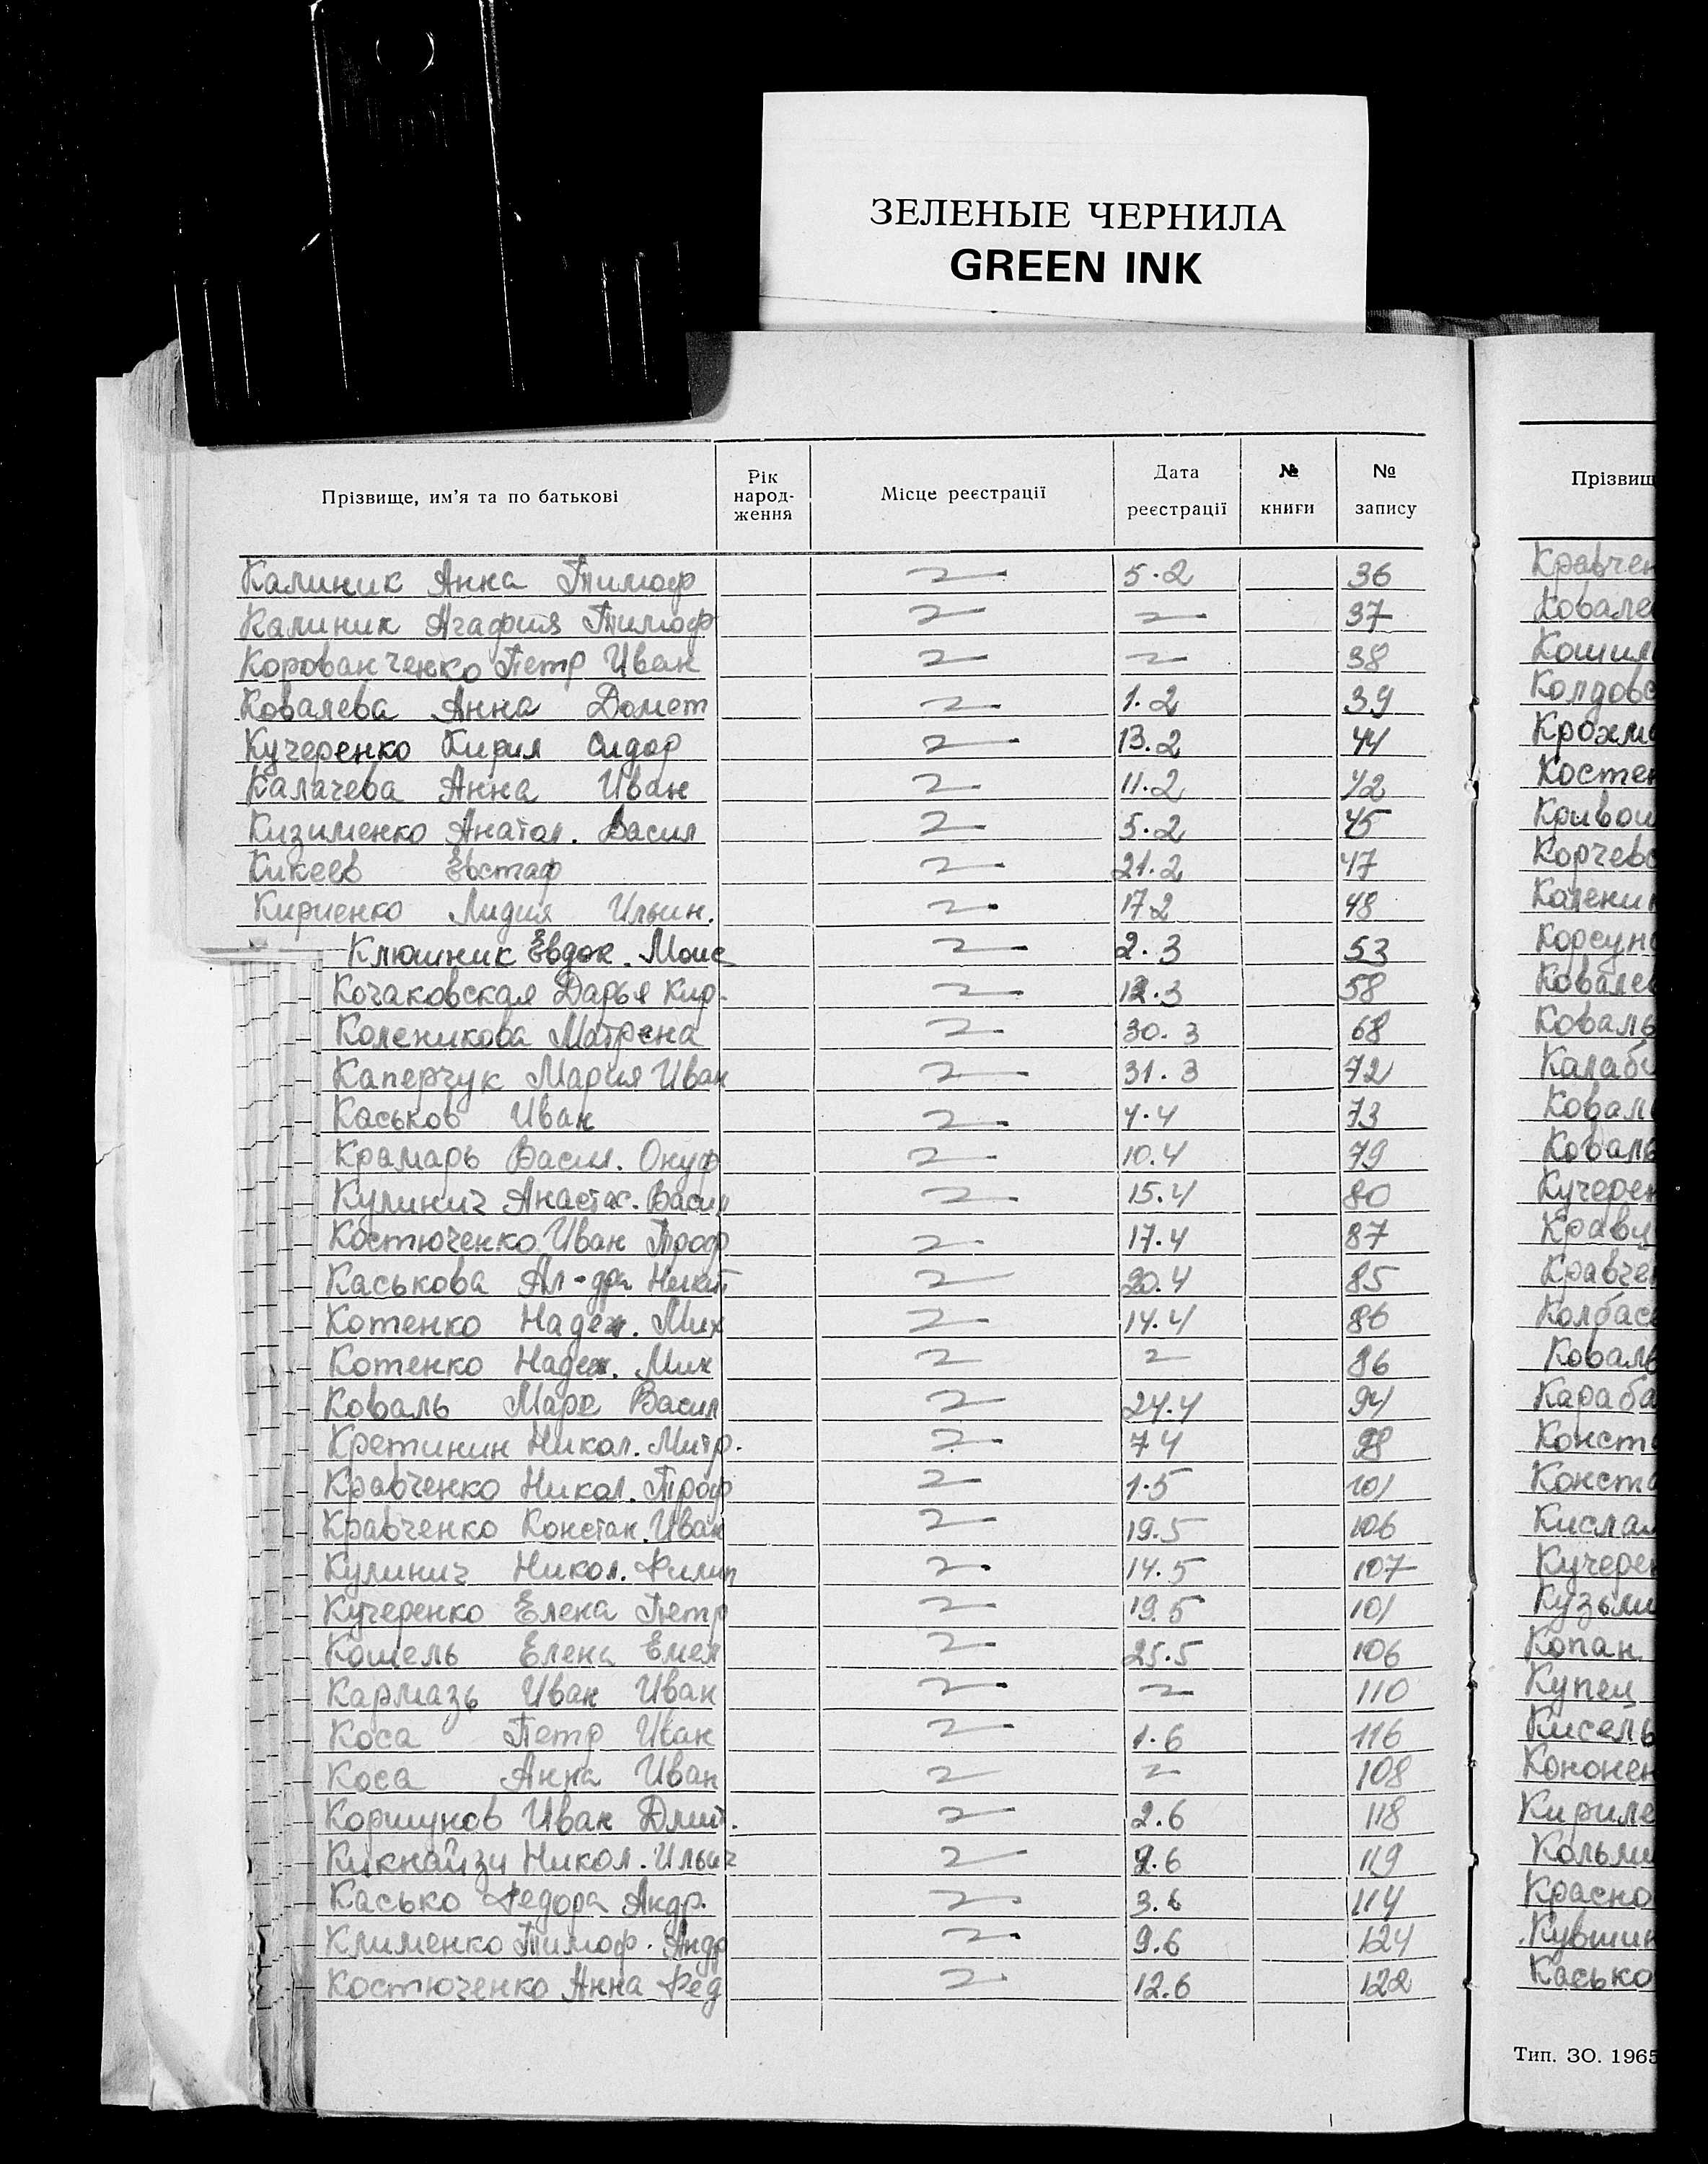 ЗЕЛЕНЫЕ ЧЕРНИЛА
GREEN INK
Прізвище, им'я та по батькові Рік народ-ження Місце реєстрації Дата реєстрації № книги № запису
Калиник Анна Тимоф 5.2 36
Калиник Агафия Тимоф 37
Корованченко Петр Иван 38
Ковалева Анна Домет 1.2 39
Кучеренко Кирил Сидор 13.2 44
Калачева Анна Иван 11.2 42
Кизименко Анатол. Васил 5.2 45
Кикеев Евстаф 21.2 47
Кириенко Лидия Ильин. 17.2 48
Клюшник Евдок. Моис 2.3 53
Кочаковская Дарья Кир. 12.3 58
Коленикова Матрена 30.3 68
Каперчук Мария Иван 31.3 72
Каськов Иван 4.4 73
Крамарь Васил. Онуф 10.4 79
Кулинич Анастас. Васил 15.4 80
Костюченко Иван Проф 17.4 87
Каськова Ал-дра Никит 20.4 85
Котенко Надеж. Мих 14.4 86
Котенко Надеж. Мих 86
Коваль Марк Васил 24.4 94
Кретинин Никол. Митр. 7 4 98
Кравченко Никол. Проф 1.5 101
Кравченко Констан. Иван 19.5 106
Кулинич Никол. Филип 14.5 107
Кучеренко Елена Петр 19.5 101
Кошель Елена Емел 25.5 106
Кармазь Иван Иван 110
Коса Петр Иван 1.6 116
Коса Анна Иван 108
Коршунов Иван Дмит. 2.6 118
Кикнайзи Никол. Ильич 9.6 119
Касько Федора Андр. 3.6 114
Клименко Тимоф. Андр 9.6 124
Костюченко Анна Фед 12.6 122
Прізвищ
Кравчен
Ковале
Кошил
Колдовс
Крохма
Костен
Кривош
Корчев
Каленик
Корсун
Ковале
Коваль
Калаб
Ковал
Коваль
Кучерен
Кравц
Кравче
Колбас
Коваль
Караба
Конст
Конста
Кислая
Кучере
Кузьми
Копан
Купец
Кисель
Кононен
Кириле
Кольми
Красно
Кувшин
Касько
Тип. ЗО. 1965